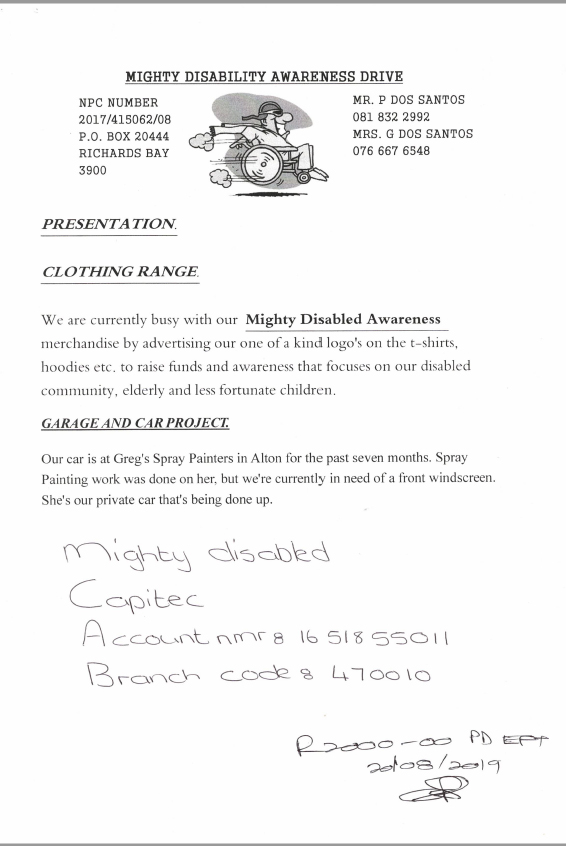 MIGHTY DISABILITY AWARENESS DRIVE
NPC NUMBER
2017/415062/08
P.O. BOX 20444
RICHARDS BAY
3900
MR. P DOS SANTOS
081 832 2992
MRS. G DOS SANTOS
076 667 6548
PRESENTATION.
CLOTHING RANGE.
We are currently busy with our Mighty Disabled Awareness
merchandise by advertising our one of a kind logo's on the t-shirts,
hoodies etc. to raise funds and awareness that focuses on our disabled
community, elderly and less fortunate children.
GARAGE AND CAR PROJECT.
Our car is at Greg's Spray Painters in Alton for the past seven months. Spray
Painting work was done on her, but we're currently in need of a front windscreen.
She's our private car that's being done up.
Mighty disabled
Capitec
Account nmr: 16 518 55011
Branch code: 470010
R2000-00 PD EFT
20/08/2019